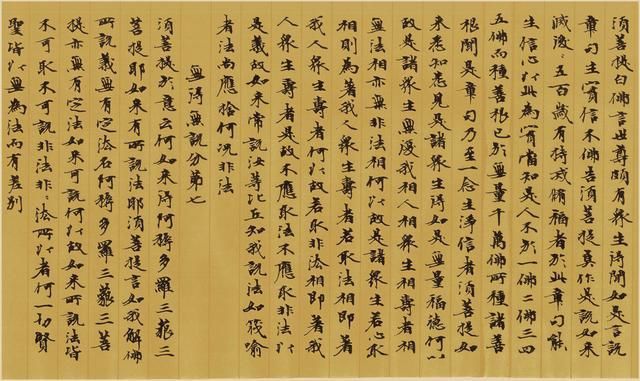 須菩提白佛言世尊頗有眾生得聞如是言說
章句生實信不佛告須菩提莫作是說如來
滅後〻五百歲有持戒脩福者於此章句能
生信心以此為實當知是人不於一佛二佛三四
五佛而種善根已於無量千萬佛所種諸善
根聞是章句乃至一念生淨信者須菩提如
來悉知悉見是諸眾生得如是無量福德何以
故是諸眾生無復我相人相眾生相壽者相
無法相亦無非法相何以故是諸眾生若心取
相則為著我人眾生壽者若取法相即著
我人眾生壽者何以故若取非法相即著我
人眾生壽者是故不應取法不應取非法以
是義故如來常說汝等比丘知我說法如筏喻
者法尚應捨何況非法
無得無說分第七
須菩提於意云何如來得阿耨多羅三藐三
菩提耶如來有所說法耶須菩提言如我解佛
所說義無有定法名阿耨多羅三藐三菩
提亦無有定法如來可說何以故如來所說法皆
不可取不可說非法非〻法所以者何一切賢
聖皆以無為法而有差別